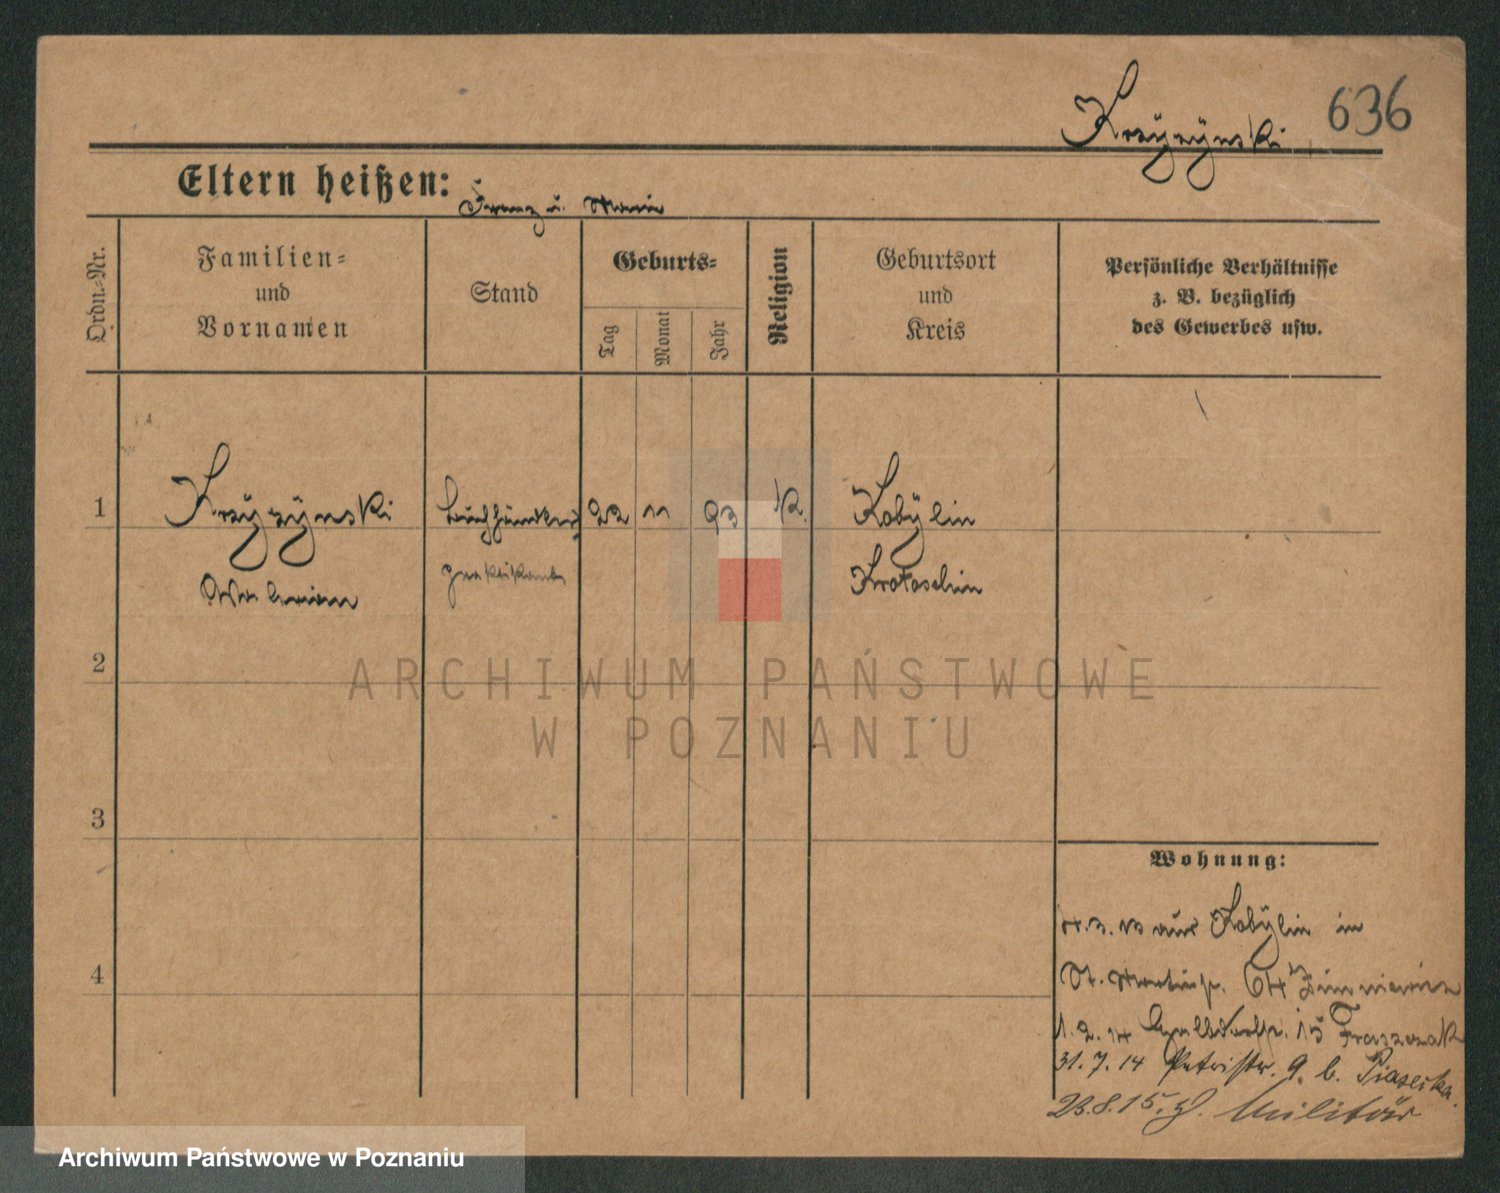 Krzyzynski 636
Eltern heißen: Franz u. Maria
Ordn.-Nr.
Familien-
und
Vornamen
Stand
Geburts-
Tag
Monat
Jahr
Religion
Geburtsort
und
Kreis
Persönliche Verhältnisse
z. B. bezüglich
des Gewerbes usw.
1 Krzyzynski 22 11 93 K. Kobylin
Walerian praktikant Krotoschin
2
ARCHIWUM PAŃSTWOWE
W POZNANIU
3
Wohnung:
aus Kobylin in
4
St. Martinstr. 64
1.2.14 15 Fraszczak
31.7.14 Petristr. 9 b. Piasecka
23.8.15. z. Militär
Archiwum Państwowe w Poznaniu